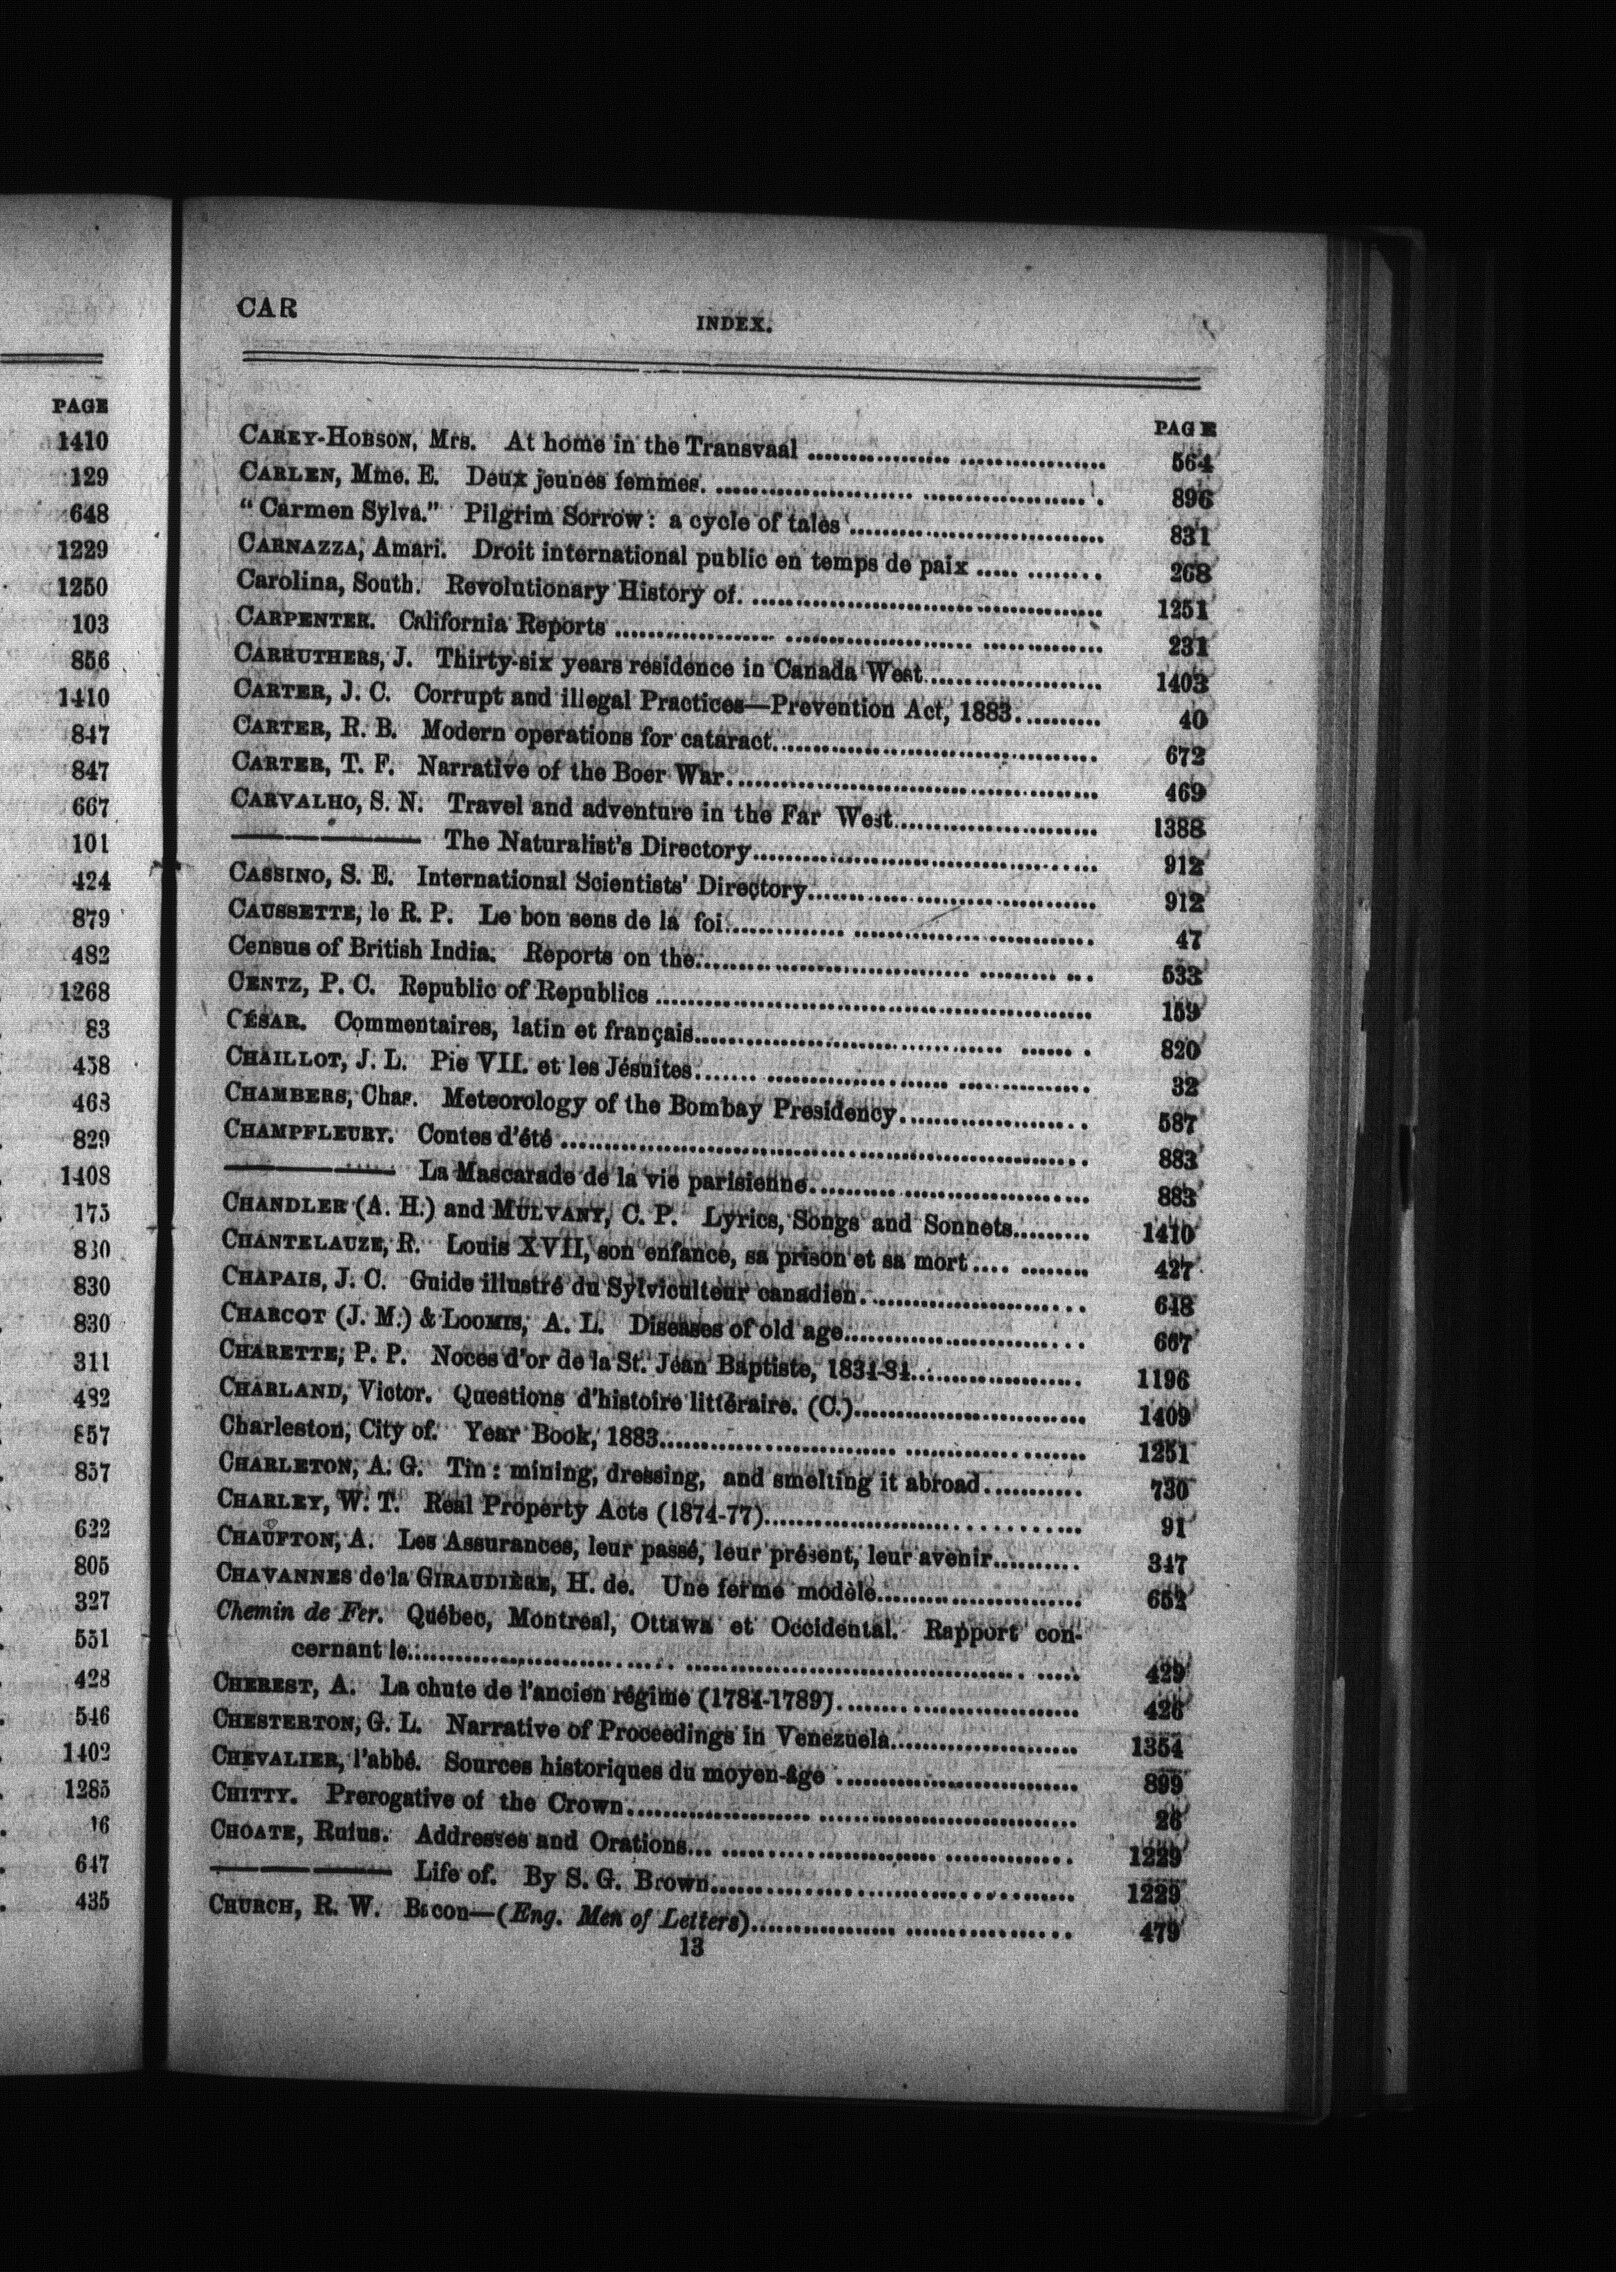 PAGE
1410
129
648
1229
1250
103
856
1410
847
847
667
101
424
879
482
1268
83
458
463
829
1408
175
830
830
830
311
482
857
857
622
805
327
551
428
546
1402
1285
16
647
435
CAR
INDEX.
PAGE
CAREY-HOBSON, Mrs. At home in the Transvaal ........ 564
CARLEN, Mme. E. Deux jeunes femmes. ........ 896
"Carmen Sylva." Pilgrim Sorrow: a cycle of tales ........ 831
CARNAZZA, Amari. Droit international public en temps de paix ........ 268
Carolina, South. Revolutionary History of. ........ 1251
CARPENTER. California Reports ........ 231
CARRUTHERS, J. Thirty-six years residence in Canada West ........ 1403
CARTER, J. C. Corrupt and illegal Practices—Prevention Act, 1883 ........ 40
CARTER, R. B. Modern operations for cataract ........ 672
CARTER, T. F. Narrative of the Boer War ........ 469
CARVALHO, S. N. Travel and adventure in the Far West ........ 1388
———— The Naturalist's Directory ........ 912
CASSINO, S. E. International Scientists' Directory ........ 912
CAUSSETTE, le R. P. Le bon sens de la foi ........ 47
Census of British India. Reports on the ........ 533
CENTZ, P. C. Republic of Republics ........ 159
CÉSAR. Commentaires, latin et français ........ 820
CHAILLOT, J. L. Pie VII. et les Jésuites ........ 32
CHAMBERS, Chas. Meteorology of the Bombay Presidency ........ 587
CHAMPFLEURY. Contes d'été ........ 883
———— La Mascarade de la vie parisienne ........ 883
CHANDLER (A. H.) and MULVANY, C. P. Lyrics, Songs and Sonnets ........ 1410
CHANTELAUZE, R. Louis XVII, son enfance, sa prison et sa mort ........ 427
CHAPAIS, J. C. Guide illustré du Sylviculteur canadien ........ 648
CHARCOT (J. M.) & LOOMIS, A. L. Diseases of old age ........ 667
CHARETTE, P. P. Noces d'or de la St. Jean Baptiste, 1834-84 ........ 1196
CHARLAND, Victor. Questions d'histoire littéraire. (C.) ........ 1409
Charleston, City of. Year Book, 1883 ........ 1251
CHARLETON, A. G. Tin: mining, dressing, and smelting it abroad ........ 730
CHARLEY, W. T. Real Property Acts (1874-77) ........ 91
CHAUFTON, A. Les Assurances, leur passé, leur présent, leur avenir ........ 347
CHAVANNES de la GIRAUDIÈRE, H. de. Une ferme modèle ........ 652
Chemin de Fer. Québec, Montréal, Ottawa et Occidental. Rapport con-
cernant le ........ 429
CHEREST, A. La chute de l'ancien régime (1784-1789) ........ 426
CHESTERTON, G. L. Narrative of Proceedings in Venezuela ........ 1354
CHEVALIER, l'abbé. Sources historiques du moyen-âge ........ 899
CHITTY. Prerogative of the Crown ........ 26
CHOATE, Rufus. Addresses and Orations ........ 1229
———— Life of. By S. G. Brown ........ 1229
CHURCH, R. W. Bacon—(Eng. Men of Letters) ........ 479
13